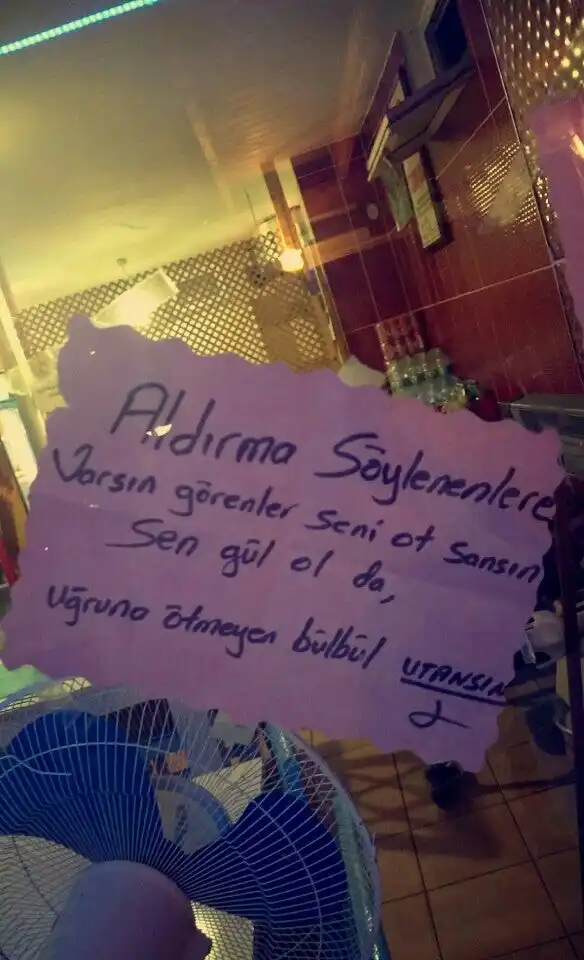 Aldırma Söylenenlere
Varsın görenler seni ot sansın
Sen gül ol da,
uğruna ötmeyen bülbül UTANSIN